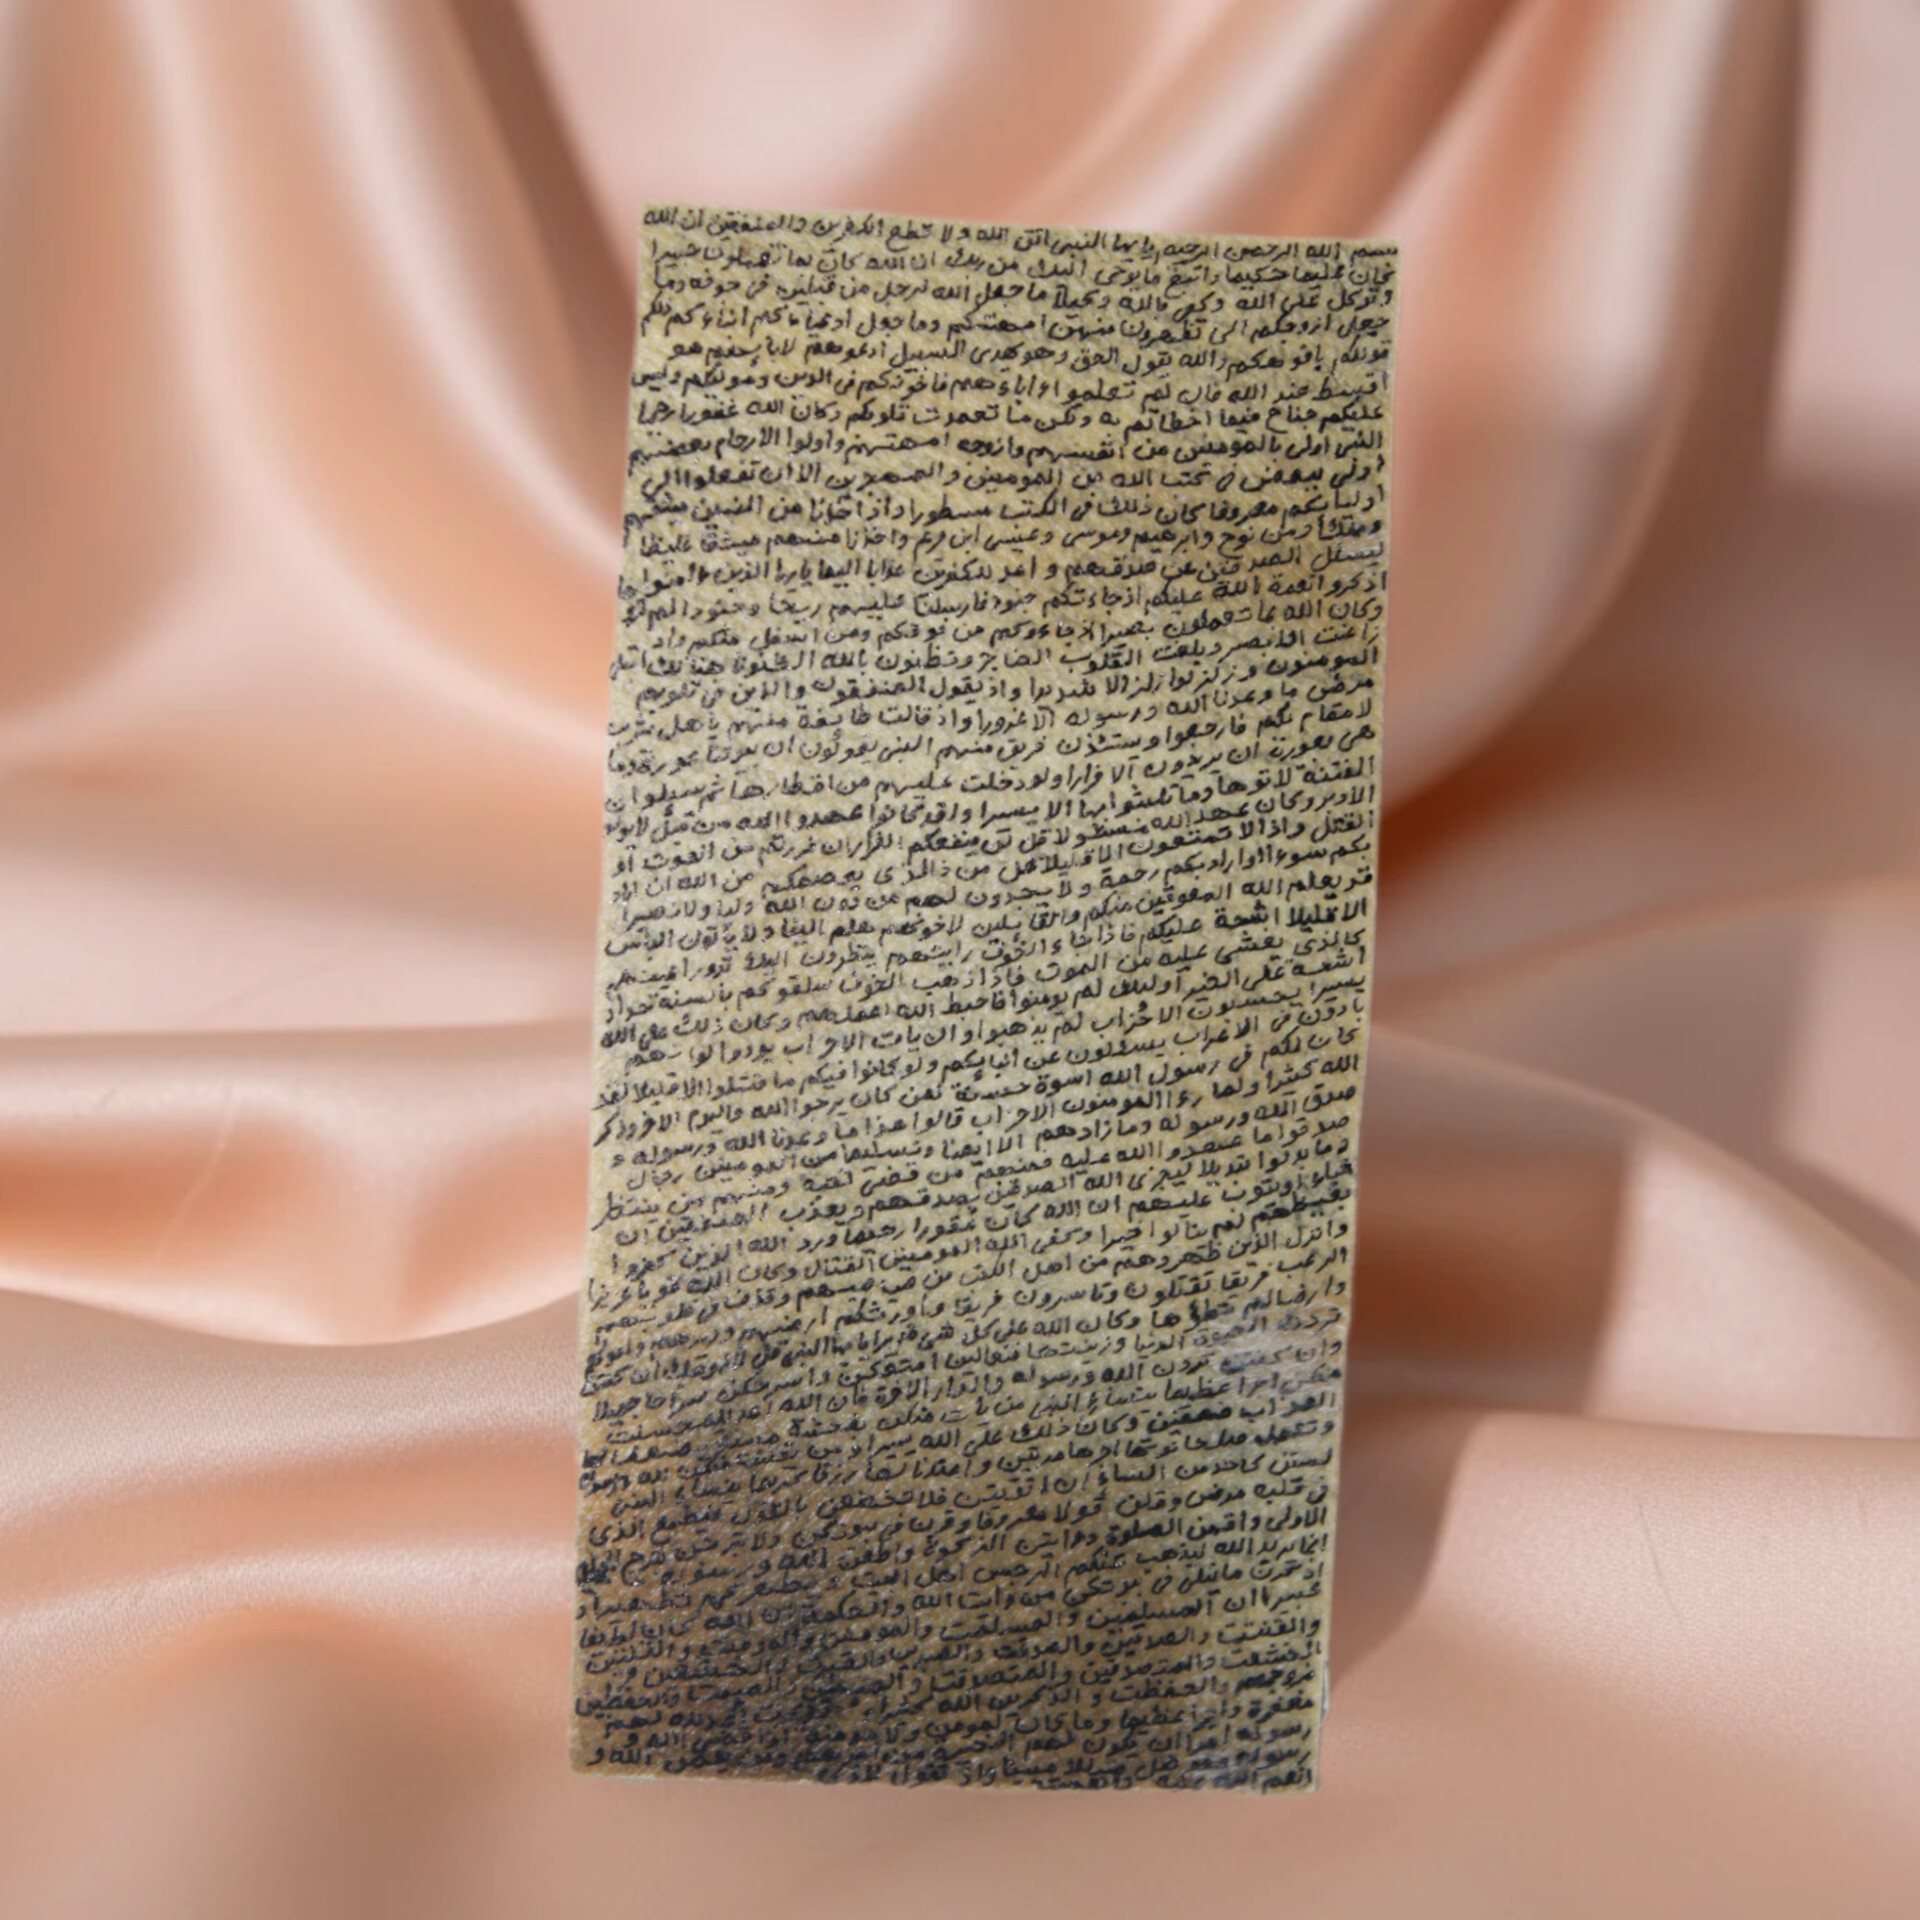 بسم الله الرحمن الرحيم يايها النبي اتق الله ولا تطع الكفرين والمنفقين ان الله
كان عليما حكيما واتبع ما يوحى اليك من ربك ان الله كان بما تعملون خبيرا
وتوكل على الله وكفى بالله وكيلا ما جعل الله لرجل من قلبين في جوفه وما
جعل ازوجكم الى تظهرون منهن امهتكم وما جعل ادعياءكم ابناءكم ذلكم
قولكم بافوهكم والله يقول الحق وهو يهدى السبيل ادعوهم لابايهم هو
اقسط عند الله فان لم تعلموا اباءهم فاخونكم في الدين ومواليكم وليس
عليكم جناح فيما اخطاتم به ولكن ما تعمدت قلوبكم وكان الله غفورا رحيما
النبي اولى بالمومنين من انفسهم وازوجه امهتهم واولوا الارحام بعضهم
اولى ببعض في كتب الله من المومنين والمهجرين الا ان تفعلوا الى
اوليايكم معروفا كان ذلك في الكتب مسطورا واذ اخذنا من النبين ميثقهم
ومنك ومن نوح وابرهيم وموسى وعيسى ابن مريم واخذنا منهم ميثقا غليظا
ليسئل الصدقين عن صدقهم و اعد للكفرين عذابا اليما يايها الذين ءامنوا
اذكروا نعمة الله عليكم اذ جاءتكم جنود فارسلنا عليهم ريحا وجنودا لم
وكان الله بما تعملون بصيرا اذ جاءوكم من فوقكم ومن اسفل منكم واذ
زاغت الابصر وبلغت القلوب الحناجر وتظنون بالله الظنونا هنالك ابتلى
المومنون وزلزلوا زلزالا شديدا واذ يقول المنفقون والذين في قلوبهم
مرض ما وعدنا الله ورسوله الا غرورا واذ قالت طايفة منهم ياهل يثرب
لا مقام لكم فارجعوا ويستئذن فريق منهم النبي يقولون ان بيوتنا عورة وما
هي بعورة ان يريدون الا فرارا ولو دخلت عليهم من اقطارها ثم سئلوا
الفتنة لاتوها وما تلبثوا بها الا يسيرا ولقد كانوا عهدوا الله من قبل لا يولون
الادبر وكان عهد الله مسئولا قل لن ينفعكم الفرار ان فررتم من الموت او
القتل واذا لا تمتعون الا قليلا قل من ذا الذى يعصمكم من الله ان اراد
بكم سوءا او اراد بكم رحمة ولا يجدون لهم من دون الله وليا ولا نصيرا
قد يعلم الله المعوقين منكم والقايلين لاخونهم هلم الينا ولا ياتون الباس
الا قليلا اشحة عليكم فاذا جاء الخوف رايتهم ينظرون اليك تدور اعينهم
كالذى يغشى عليه من الموت فاذا ذهب الخوف سلقوكم بالسنة حداد
اشحة على الخير اوليك لم يومنوا فاحبط الله اعملهم وكان ذلك على الله
يسيرا يحسبون الاحزاب لم يذهبوا وان يات الاحزاب يودوا لو انهم
بادون في الاعراب يسئلون عن انبايكم ولو كانوا فيكم ما قتلوا الا قليلا لقد
كان لكم في رسول الله اسوة حسنة لمن كان يرجوا الله واليوم الاخر وذكر
الله كثيرا ولما رءا المومنون الاحزاب قالوا هذا ما وعدنا الله ورسوله و
صدق الله ورسوله وما زادهم الا ايمنا وتسليما من المومنين رجال
صدقوا ما عهدوا الله عليه فمنهم من قضى نحبه ومنهم من ينتظر
وما بدلوا تبديلا ليجزى الله الصدقين بصدقهم ويعذب المنفقين ان
شاء او يتوب عليهم ان الله كان غفورا رحيما ورد الله الذين كفروا
بغيظهم لم ينالوا خيرا وكفى الله المومنين القتال وكان الله قويا عزيزا
وانزل الذين ظهروهم من اهل الكتب من صياصيهم وقذف في قلوبهم
الرعب فريقا تقتلون وتاسرون فريقا واورثكم ارضهم وديرهم واموالهم
وارضا لم تطؤها وكان الله على كل شيء قديرا يايها النبي قل لازوجك ان كنتن
تردن الحيوة الدنيا وزينتها فتعالين امتعكن واسرحكن سراحا جميلا
وان كنتن تردن الله ورسوله والدار الاخرة فان الله اعد للمحسنت
منكن اجرا عظيما ينساء النبي من يات منكن بفحشة مبينة يضعف لها
العذاب ضعفين وكان ذلك على الله يسيرا ومن يقنت منكن لله ورسوله
وتعمل صلحا نوتها اجرها مرتين واعتدنا لها رزقا كريما ينساء النبي
لستن كاحد من النساء ان اتقيتن فلا تخضعن بالقول فيطمع الذى
في قلبه مرض وقلن قولا معروفا وقرن في بيوتكن ولا تبرجن تبرج
الاولى واقمن الصلوة وءاتين الزكوة واطعن الله ورسوله
انما يريد الله ليذهب عنكم الرجس اهل البيت ويطهركم تطهيرا و
اذكرن ما يتلى في بيوتكن من ءايت الله والحكمة ان الله كان لطيفا
خبيرا ان المسلمين والمسلمت والمومنين والمومنت والقنتين
والقنتت والصدقين والصدقت والصبرين والصبرت والخشعين و
الخشعت والمتصدقين والمتصدقت والصيمين والصيمت والحفظين
فروجهم والحفظت والذكرين الله كثيرا
مغفرة واجرا عظيما وما كان لمومن ولا مومنة اذا قضى الله و
رسوله امرا ان يكون لهم الخيرة من امرهم ومن يعص الله و
رسوله فقد ضل ضللا مبينا واذ تقول للذى
انعم الله عليه وانعمت